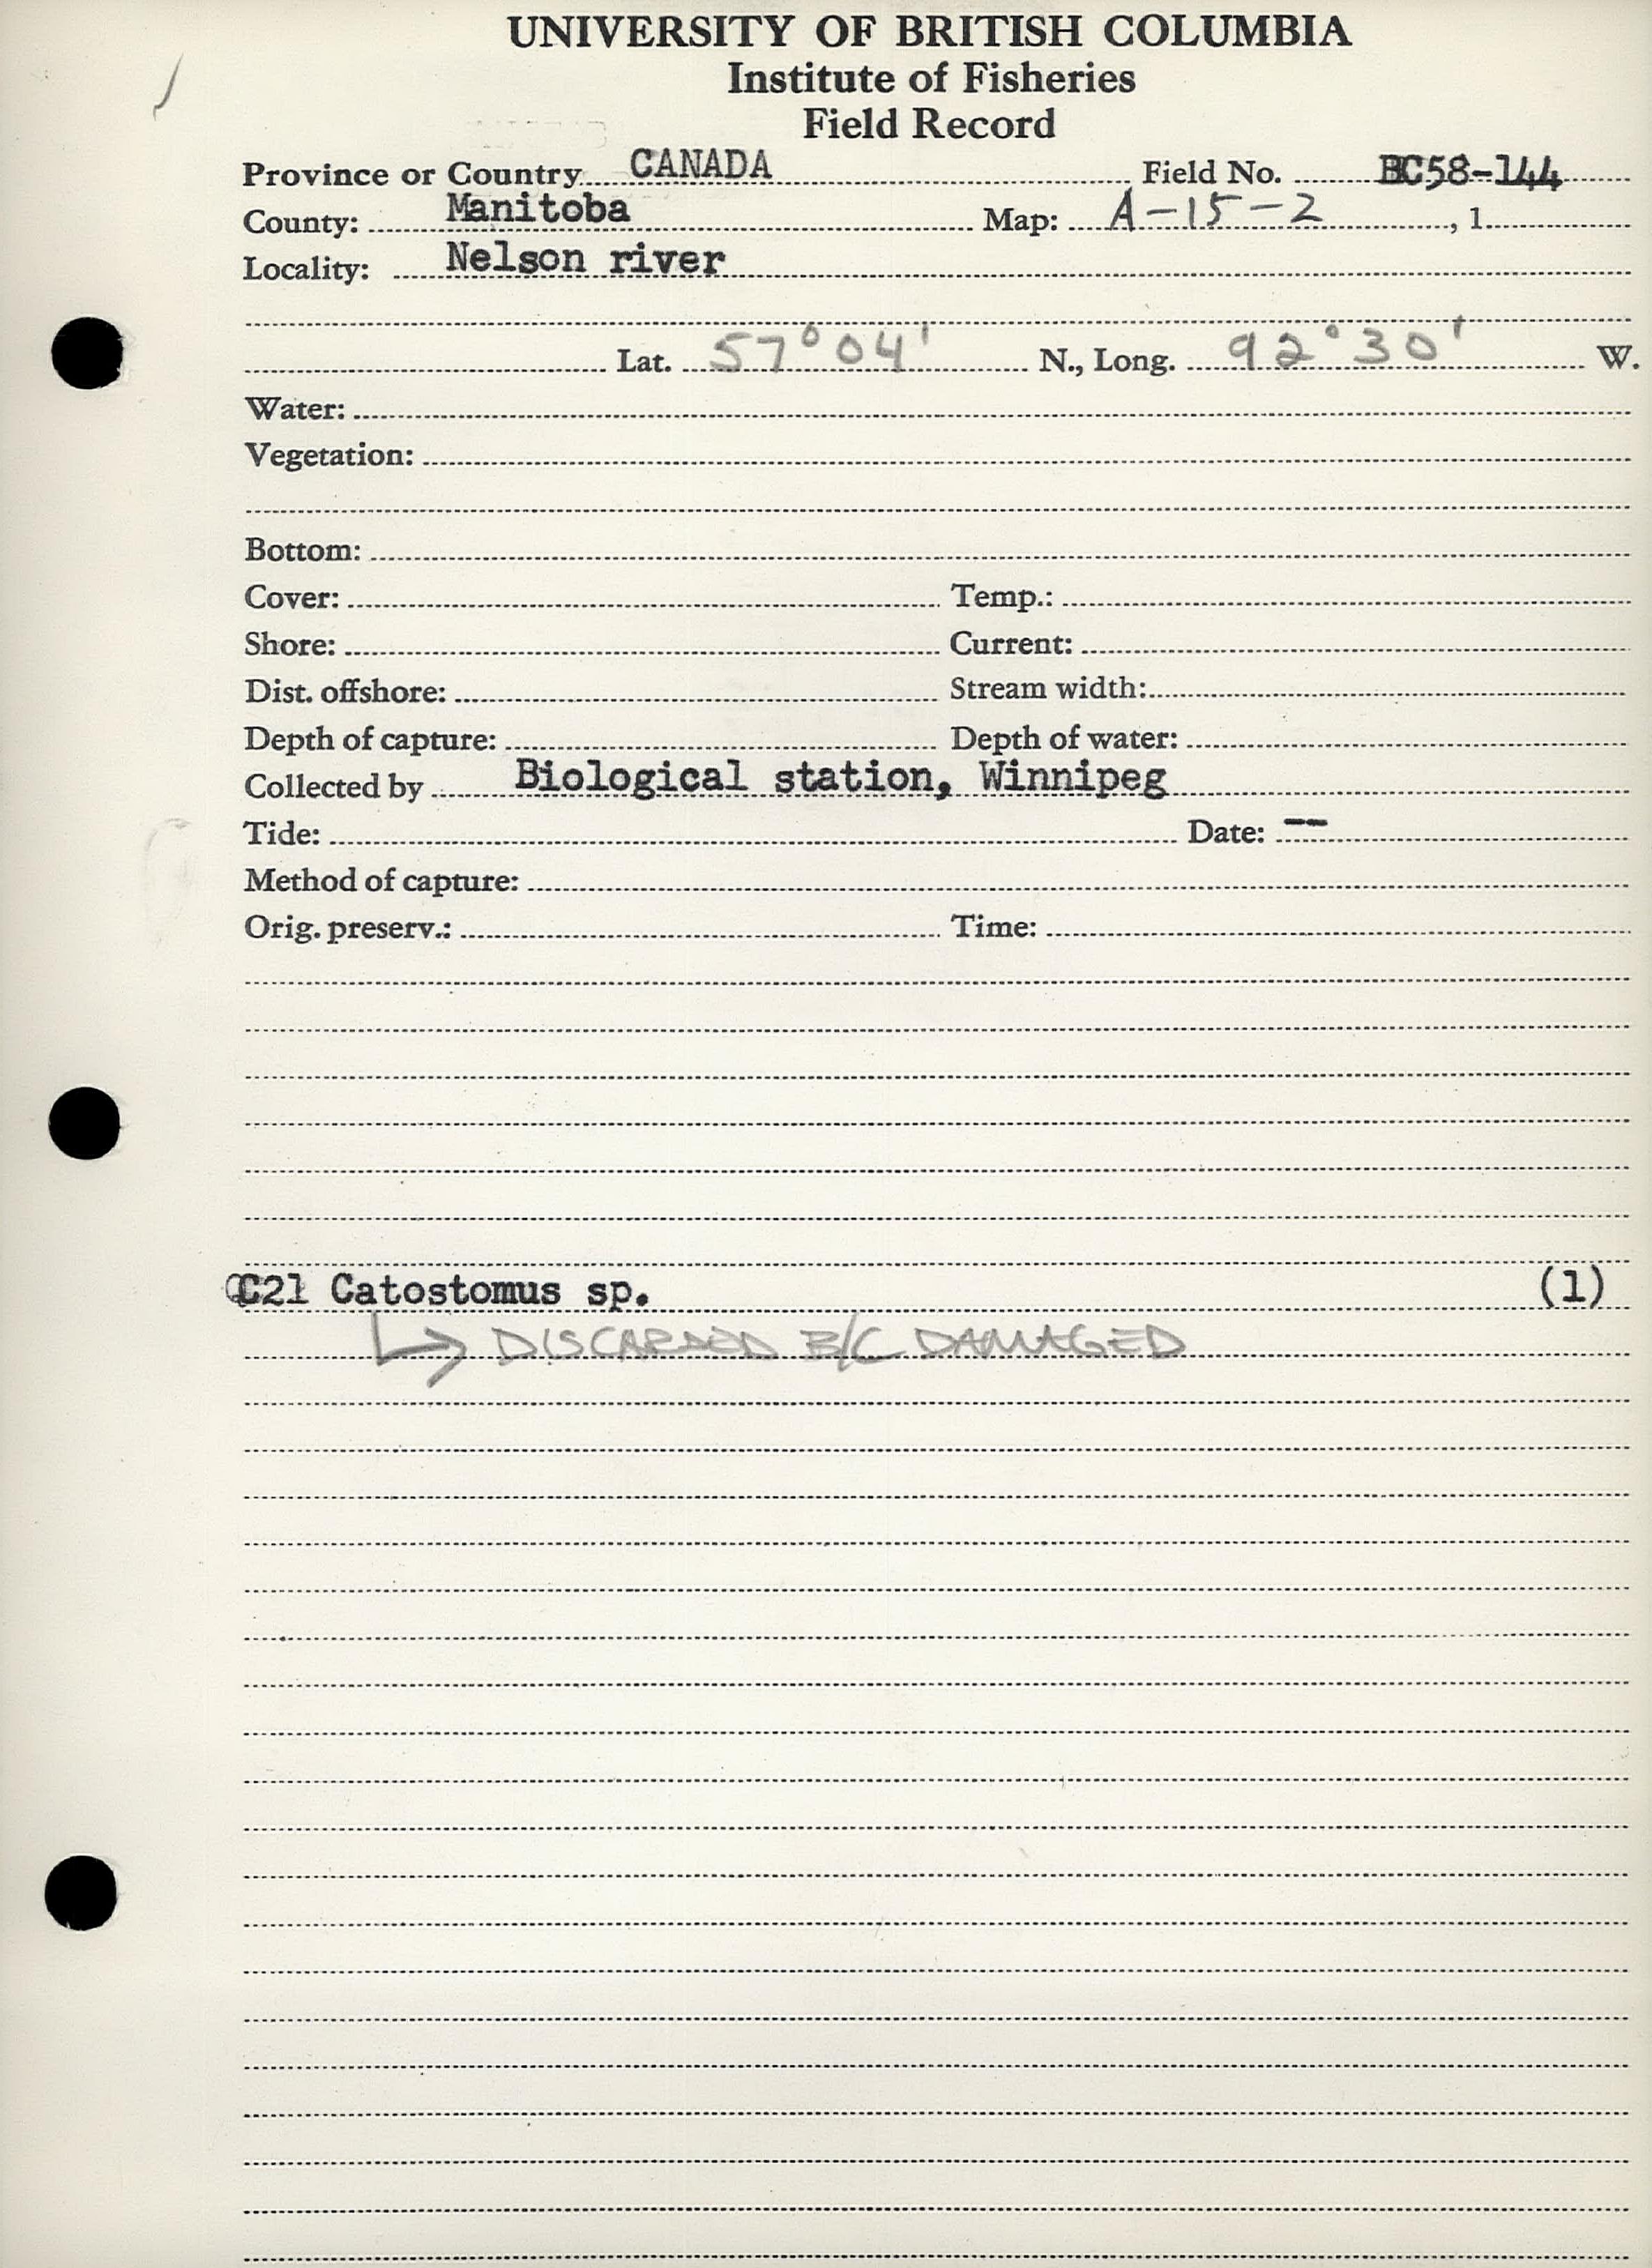 UNIVERSITY OF BRITISH COLUMBIA
Institute of Fisheries
Field Record
Province or Country CANADA Field No. BC58-144
County: Manitoba Map: A-15-2, 1
Locality: Nelson river
Lat. 57°04' N., Long. 92°30' W.
Water:
Vegetation:
Bottom:
Cover: Temp.:
Shore: Current:
Dist. offshore: Stream width:
Depth of capture: Depth of water:
Collected by Biological station, Winnipeg
Tide: Date: --
Method of capture:
Orig. preserv.: Time:
C21 Catostomus sp. (1)
↳ DISCARDED B/C DAMAGED